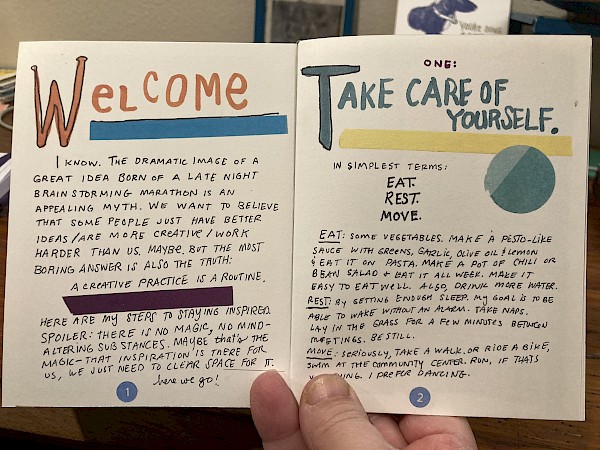 WELCOME
I KNOW. THE DRAMATIC IMAGE OF A
GREAT IDEA BORN OF A LATE NIGHT
BRAIN STORMING MARATHON IS AN
APPEALING MYTH. WE WANT TO BELIEVE
THAT SOME PEOPLE JUST HAVE BETTER
IDEAS/ARE MORE CREATIVE/WORK
HARDER THAN US. MAYBE. BUT THE MOST
BORING ANSWER IS ALSO THE TRUTH:
A CREATIVE PRACTICE IS A ROUTINE.
HERE ARE MY STEPS TO STAYING INSPIRED.
SPOILER: THERE IS NO MAGIC, NO MIND-
ALTERING SUBSTANCES. MAYBE that's THE
MAGIC-THAT INSPIRATION IS THERE FOR
US, WE JUST NEED TO CLEAR SPACE FOR IT.
here we go!
1
ONE:
TAKE CARE OF
YOURSELF.
IN SIMPLEST TERMS:
EAT.
REST.
MOVE.
EAT: SOME VEGETABLES. MAKE A PESTO-LIKE
SAUCE WITH GREENS, GARLIC, OLIVE OIL & LEMON
& EAT IT ON PASTA. MAKE A POT OF CHILI OR
BEAN SALAD & EAT IT ALL WEEK. MAKE IT
EASY TO EAT WELL. ALSO, DRINK MORE WATER.
REST: BY GETTING ENOUGH SLEEP. MY GOAL IS TO BE
ABLE TO WAKE WITHOUT AN ALARM. TAKE NAPS.
LAY IN THE GRASS FOR A FEW MINUTES BETWEEN
MEETINGS. BE STILL.
MOVE: SERIOUSLY, TAKE A WALK. OR RIDE A BIKE,
SWIM AT THE COMMUNITY CENTER. RUN, IF THAT'S
I PREFER DANCING.
2